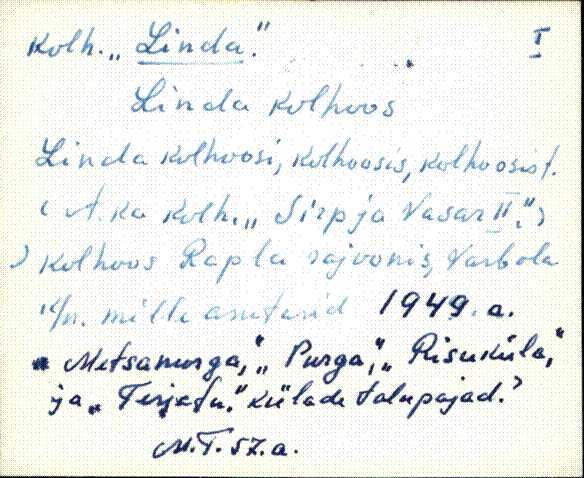 Kolh. „Linda."
I
Linda kolhoos
Linda kolhoosi, kolhoosis, kolhoosist.
(A. ka kolh. „Sirp ja Vasar II.")
) kolhoos Rapla rajoonis, Varbola
k/n. mille asutasid 1949. a.
„Metsanurga," „Purga," „Risuküla,"
ja „Terjetu." külade talupajad.)
M.T. 57. a.